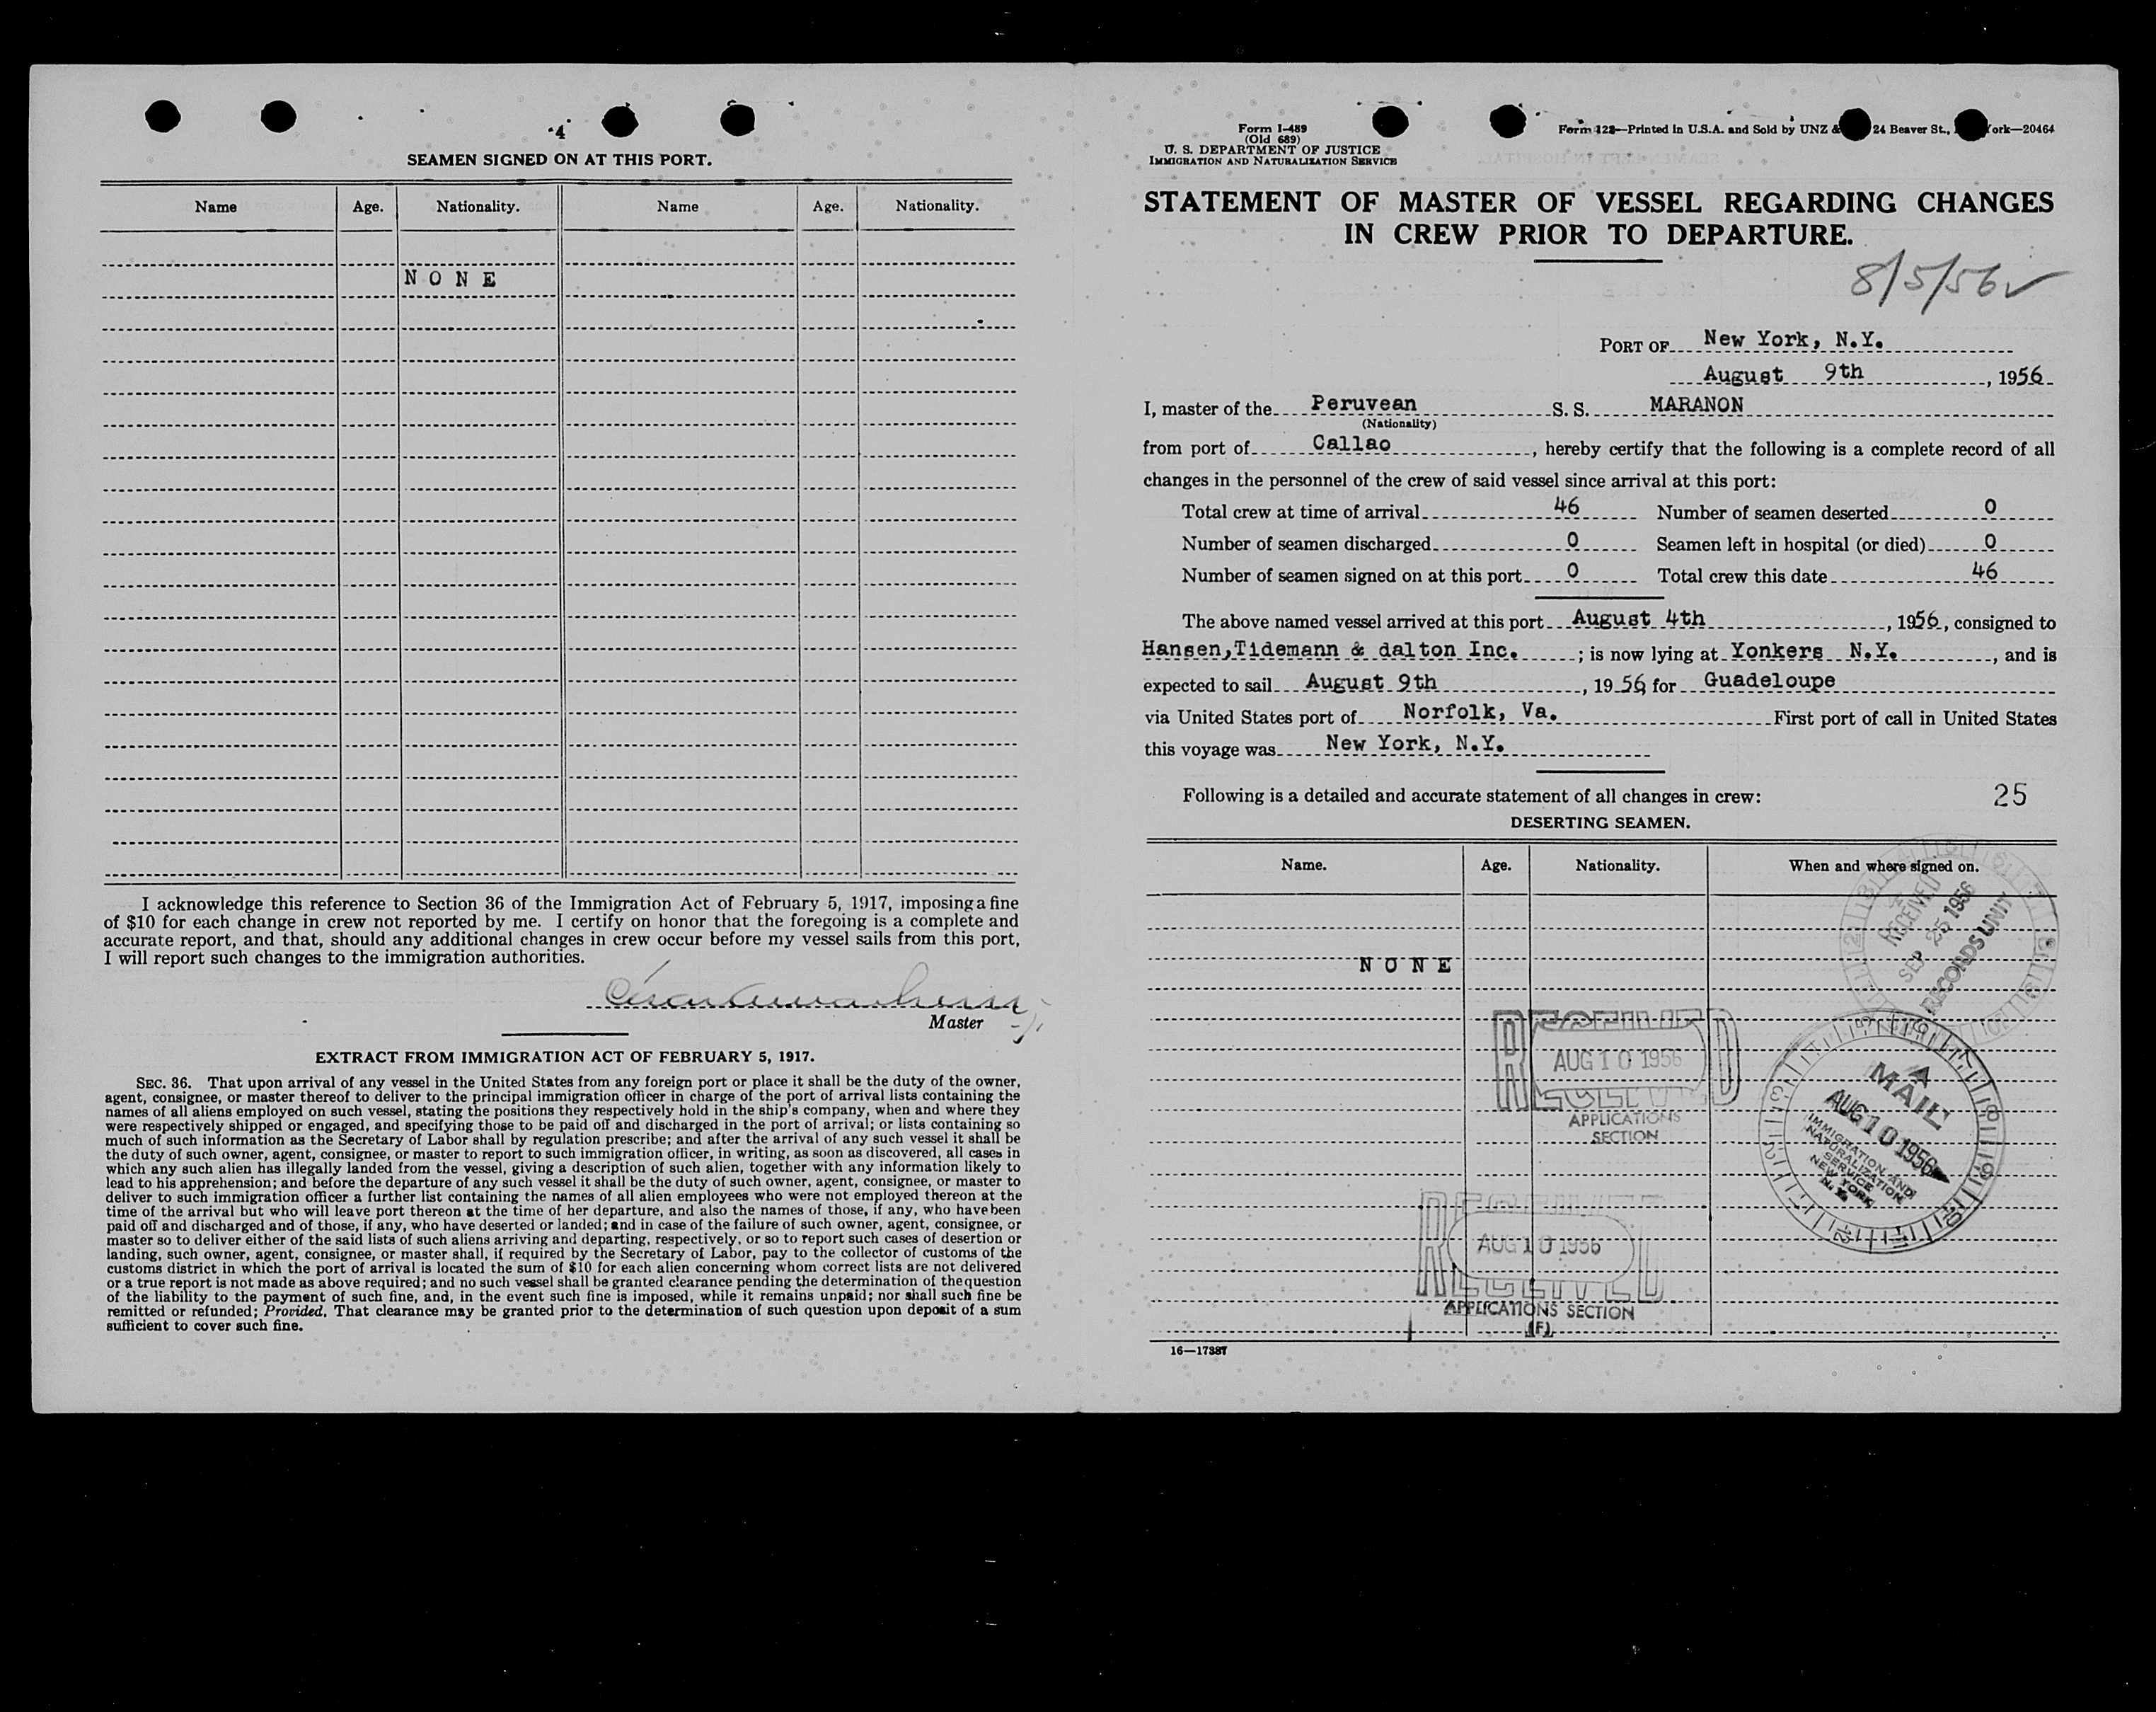 4
SEAMEN SIGNED ON AT THIS PORT.
Name Age. Nationality. Name Age. Nationality.
N O N E
I acknowledge this reference to Section 36 of the Immigration Act of February 5, 1917, imposing a fine
of $10 for each change in crew not reported by me. I certify on honor that the foregoing is a complete and
accurate report, and that, should any additional changes in crew occur before my vessel sails from this port,
I will report such changes to the immigration authorities.
Master
EXTRACT FROM IMMIGRATION ACT OF FEBRUARY 5, 1917.
SEC. 36. That upon arrival of any vessel in the United States from any foreign port or place it shall be the duty of the owner,
agent, consignee, or master thereof to deliver to the principal immigration officer in charge of the port of arrival lists containing the
names of all aliens employed on such vessel, stating the positions they respectively hold in the ship's company, when and where they
were respectively shipped or engaged, and specifying those to be paid off and discharged in the port of arrival; or lists containing so
much of such information as the Secretary of Labor shall by regulation prescribe; and after the arrival of any such vessel it shall be
the duty of such owner, agent, consignee, or master to report to such immigration officer, in writing, as soon as discovered, all cases in
which any such alien has illegally landed from the vessel, giving a description of such alien, together with any information likely to
lead to his apprehension; and before the departure of any such vessel it shall be the duty of such owner, agent, consignee, or master to
deliver to such immigration officer a further list containing the names of all alien employees who were not employed thereon at the
time of the arrival but who will leave port thereon at the time of her departure, and also the names of those, if any, who have been
paid off and discharged and of those, if any, who have deserted or landed; and in case of the failure of such owner, agent, consignee, or
master so to deliver either of the said lists of such aliens arriving and departing, respectively, or so to report such cases of desertion or
landing, such owner, agent, consignee, or master shall, if required by the Secretary of Labor, pay to the collector of customs of the
customs district in which the port of arrival is located the sum of $10 for each alien concerning whom correct lists are not delivered
or a true report is not made as above required; and no such vessel shall be granted clearance pending the determination of the question
of the liability to the payment of such fine, and, in the event such fine is imposed, while it remains unpaid; nor shall such fine be
remitted or refunded; Provided, That clearance may be granted prior to the determination of such question upon deposit of a sum
sufficient to cover such fine.
Form I-489
(Old 689)
U. S. DEPARTMENT OF JUSTICE
IMMIGRATION AND NATURALIZATION SERVICE
Form 128—Printed in U.S.A. and Sold by UNZ & 24 Beaver St., ork—20464
STATEMENT OF MASTER OF VESSEL REGARDING CHANGES
IN CREW PRIOR TO DEPARTURE.
8/5/56 ✓
PORT OF New York, N.Y.
August 9th, 1956
I, master of the Peruvean S. S. MARANON
(Nationality)
from port of Callao, hereby certify that the following is a complete record of all
changes in the personnel of the crew of said vessel since arrival at this port:
Total crew at time of arrival 46 Number of seamen deserted 0
Number of seamen discharged 0 Seamen left in hospital (or died) 0
Number of seamen signed on at this port 0 Total crew this date 46
The above named vessel arrived at this port August 4th, 1956, consigned to
Hansen,Tidemann & dalton Inc. ; is now lying at Yonkers N.Y., and is
expected to sail August 9th, 1956 for Guadeloupe
via United States port of Norfolk, Va. First port of call in United States
this voyage was New York, N.Y.
Following is a detailed and accurate statement of all changes in crew: 25
DESERTING SEAMEN.
Name. Age. Nationality. When and where signed on.
RECEIVED
SEP 25 1956
RECORDS UNIT
N O N E
RECEIVED
AUG 10 1956
APPLICATIONS
SECTION
MAIL
AUG 10 1956
IMMIGRATION AND
NATURALIZATION
SERVICE
NEW YORK
N. Y.
RECEIVED
AUG 10 1956
APPLICATIONS SECTION
(F)
16—17387